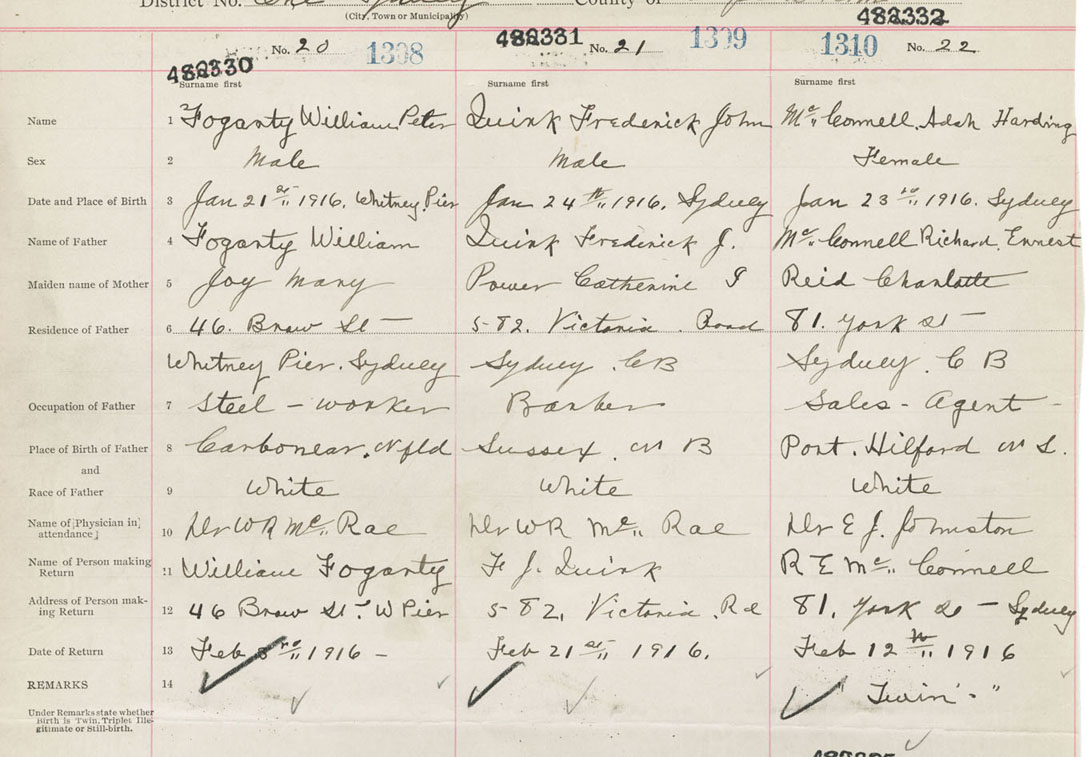 District No. One Sydney County of
(City, Town or Municipality)
482332
482330 No. 20 1308
482331 No. 21 1309
1310 No. 22
Surname first Surname first Surname first
Name 1 Fogarty William Peter Quirk Frederick John Mc Connell, Adah Harding
Sex 2 Male Male Female
Date and Place of Birth 3 Jan 21st 1916, Whitney Pier Jan 24th 1916, Sydney Jan 23rd 1916. Sydney
Name of Father 4 Fogarty William Quirk Frederick J. Mc Connell Richard Ernest
Maiden name of Mother 5 Joy Mary Power Catherine J Reid Charlotte
Residence of Father 6 46. Brow St — 582, Victoria Road 81. York St —
Whitney Pier. Sydney Sydney. C B Sydney. C B
Occupation of Father 7 Steel - worker Barber Sales - Agent -
Place of Birth of Father 8 Carbonear, Nfld Sussex. N B Port. Hilford N S.
and
Race of Father 9 White White White
Name of [Physician in attendance] 10 Dr W R Mc Rae Dr W R Mc Rae Dr E J. Johnston
Name of Person making Return 11 William Fogarty F J. Quirk R E Mc Connell
Address of Person making Return 12 46 Brow St W Pier 582, Victoria. Rd 81. York St — Sydney
Date of Return 13 Feb 3rd 1916 - Feb 21st 1916. Feb 12th 1916
REMARKS 14 "Twin"
Under Remarks state whether
Birth is Twin, Triplet, Ille-
gitimate or Still-birth.